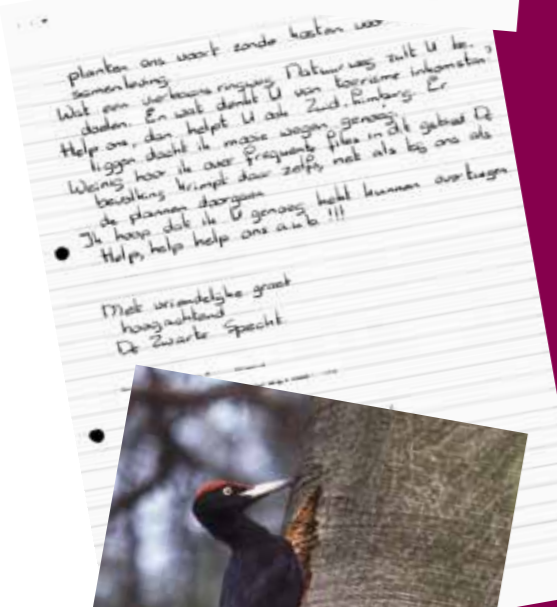 planten ons voort zonder kosten voor
samenleving.
Wat een verkeersringweg Natuurweg zult U be.
doelen. En wat denkt U van toerisme inkomsten?
Help ons, dan helpt U ook Zuid-Limburg. Er
liggen dacht ik mooie wegen genoeg.
Weinig hoor ik over frequente files in dit gebied De
bevolking krimpt daar zelfs, net als bij ons als
de plannen doorgaan
Ik hoop dat ik U genoeg hebt kunnen overtuigen
Help, help help ons a.u.b !!!
Met vriendelijke groet
hoogachtend
De Zwarte Specht